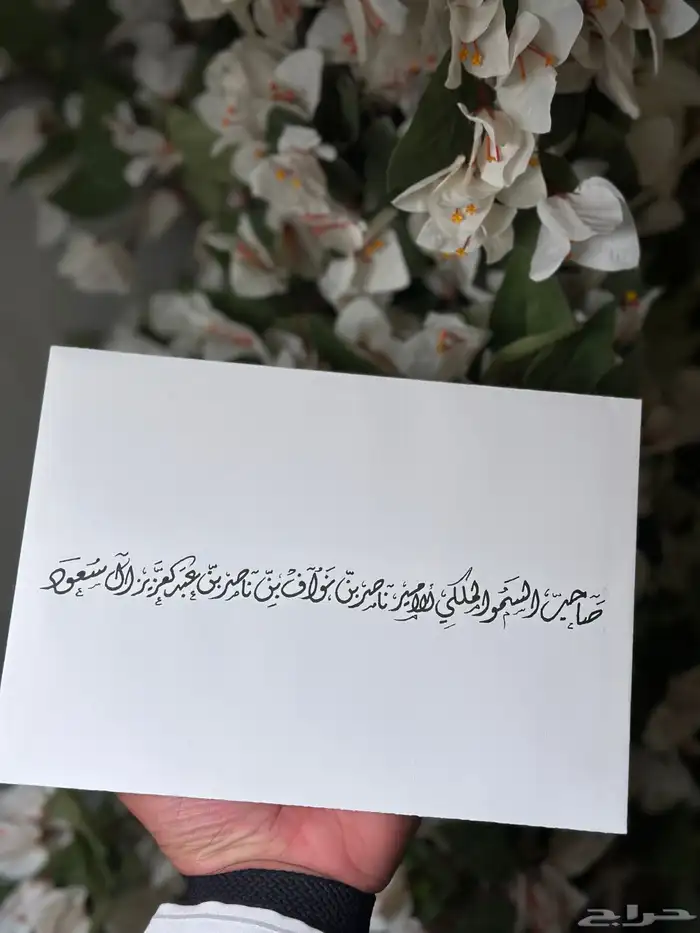 صاحب السمو الملكي الامير ناصر بن نواف بن ناصر بن عبدلعزيز ال سعود
حراج